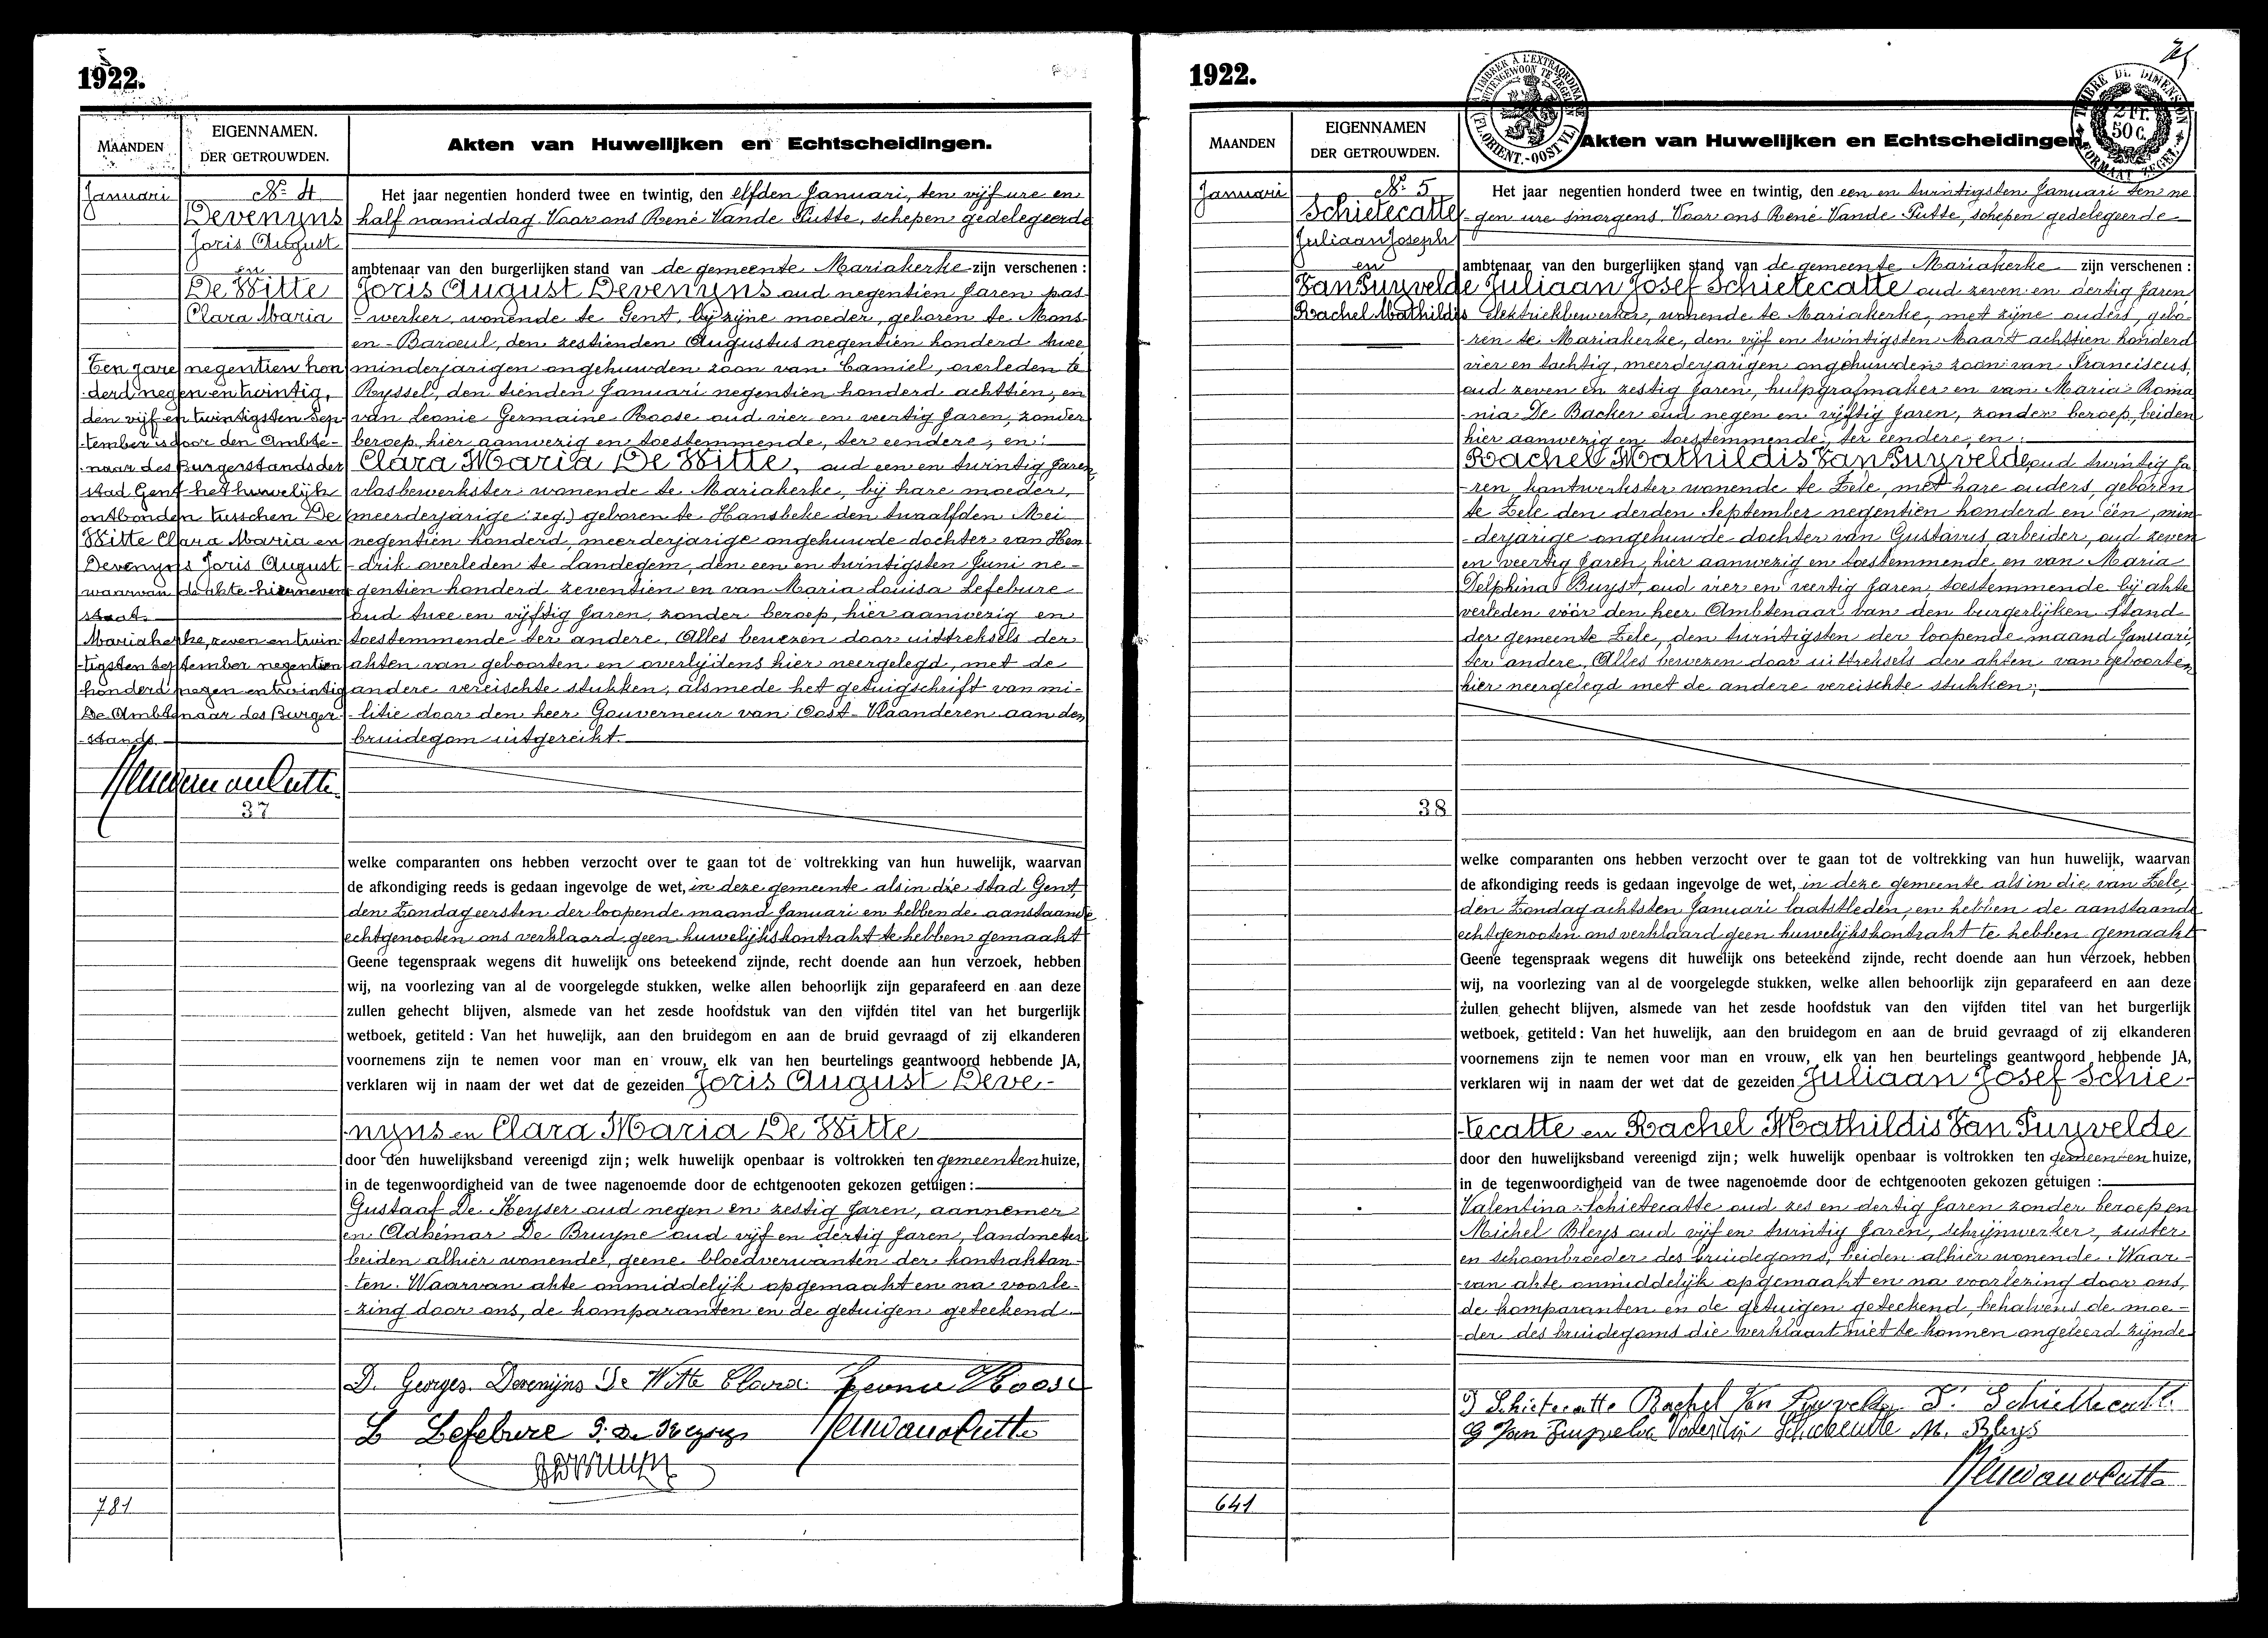 1922.
MAANDEN
EIGENNAMEN.
DER GETROUWDEN.
Akten van Huwelijken en Echtscheidingen.
Januari
Nº 4
Devenyns
Joris August
en
De Witte
Clara Maria
Ten jare negentien hon
derd negen en twintig,
den vijf en twintigsten Sep-
tember is door den Ambte-
naar des Burgerstands der
stad Gent het huwelijk
ontbonden tusschen De
Witte Clara Maria en
Devenyns Joris August
waarvan de akte hierneven
staat.
Mariakerke, zeven en twin
tigsten September negentien
honderd negen en twintig
De Ambtenaar des Burger-
stands.
37
781
Het jaar negentien honderd twee en twintig, den elfden Januari, ten vijf ure en
half namiddag. Voor ons René Vande Putte, schepen gedelegeerde
ambtenaar van den burgerlijken stand van de gemeente Mariakerke zijn verschenen :
Joris August Devenyns oud negentien jaren pas-
werker, wonende te Gent, bij zijne moeder, geboren te Mons-
en-Baroeul, den zestienden Augustus negentien honderd twee
minderjarigen ongehuwden zoon van Camiel, overleden te
Ryssel, den tienden Januari negentien honderd achttien, en
van Leonie Germaine Roose oud vier en veertig jaren, zonder
beroep, hier aanwezig en toestemmende, ter eendere, en:
Clara Maria De Witte, oud een en twintig jaren,
vlasbewerkster wonende te Mariakerke, bij hare moeder,
(meerderjarige: zeg.) geboren te Hansbeke den twaalfden Mei
negentien honderd, meerderjarige ongehuwde dochter van Hen
-drik overleden te Landegem, den een en twintigsten Juni ne-
gentien honderd zeventien en van Maria Louisa Lefebure
oud twee en vijftig jaren, zonder beroep, hier aanwezig en
toestemmende ter andere. Alles bewezen door uittreksels der
akten van geboorten en overlijdens hier neergelegd, met de
andere vereischte stukken, alsmede het getuigschrift van mi-
-litie door den heer Gouverneur van Oost-Vlaanderen aan den
bruidegom uitgereikt.
welke comparanten ons hebben verzocht over te gaan tot de voltrekking van hun huwelijk, waarvan
de afkondiging reeds is gedaan ingevolge de wet, in deze gemeente als in die stad Gent,
den Zondag eersten der loopende maand Januari en hebben de aanstaande
echtgenooten ons verklaard geen huwelijkskontrakt te hebben gemaakt
Geene tegenspraak wegens dit huwelijk ons beteekend zijnde, recht doende aan hun verzoek, hebben
wij, na voorlezing van al de voorgelegde stukken, welke allen behoorlijk zijn geparafeerd en aan deze
zullen gehecht blijven, alsmede van het zesde hoofdstuk van den vijfden titel van het burgerlijk
wetboek, getiteld : Van het huwelijk, aan den bruidegom en aan de bruid gevraagd of zij elkanderen
voornemens zijn te nemen voor man en vrouw, elk van hen beurtelings geantwoord hebbende JA,
verklaren wij in naam der wet dat de gezeiden Joris August Deve-
-nyns en Clara Maria De Witte
door den huwelijksband vereenigd zijn ; welk huwelijk openbaar is voltrokken ten gemeentenhuize,
in de tegenwoordigheid van de twee nagenoemde door de echtgenooten gekozen getuigen :
Gustaaf De Keyser oud negen en zestig jaren, aannemer
en Adhémar De Bruyne oud vijf en dertig jaren, landmeter
beiden alhier wonende, geene bloedverwanten der kontraktan-
-ten. Waarvan akte onmiddelijk opgemaakt en na voorle-
-zing door ons, de komparanten en de getuigen geteekend.
D. Georges. Devenijns De Witte Clara. Leonie Roose
L Lefebvre G. De Keyser
1922.
TIMBRE À L'EXTRAORDINAIRE
BUITENGEWOON TE ZEGELEN
(FL. ORIENT.-OOST VL.)
TIMBRE DE DIMENSION
2 Fr.
50 C.
FORMAAT ZEGEL
MAANDEN
EIGENNAMEN
DER GETROUWDEN.
Akten van Huwelijken en Echtscheidingen.
Januari
Nº 5
Schietecatte
Juliaan Joseph
en
Van Puyvelde
Rachel Mathildis
38
641
Het jaar negentien honderd twee en twintig, den een en twintigsten Januari ten ne
-gen ure smorgens. Voor ons René Vande Putte, schepen gedelegeerde
ambtenaar van den burgerlijken stand van de gemeente Mariakerke zijn verschenen :
Juliaan Josef Schietecatte oud zeven en dertig jaren
elektriekbewerker, wonende te Mariakerke, met zijne ouders, gebo-
-ren te Mariakerke, den vijf en twintigsten Maart achttien honderd
vier en tachtig, meerderjarigen ongehuwden zoon van Franciscus,
oud zeven en zestig jaren, hulpgrafmaker en van Maria Roma
-nia De Backer oud negen en vijftig jaren, zonder beroep, beiden
hier aanwezig en toestemmende, ter eendere, en:
Rachel Mathildis Van Puyvelde, oud twintig ja
-ren kantwerkster wonende te Zele, met hare ouders, geboren
te Zele den derden September negentien honderd en één, min-
-derjarige ongehuwde dochter van Gustavus, arbeider, oud zeven
en veertig jaren, hier aanwezig en toestemmende, en van Maria
Delphina Buyst, oud vier en veertig jaren, toestemmende bij akte
verleden vóór den heer Ambtenaar van den burgerlijken stand
der gemeente Zele, den twintigsten der loopende maand Januari,
ter andere. Alles bewezen door uittreksels der akten van geboorten,
hier neergelegd met de andere vereischte stukken;
welke comparanten ons hebben verzocht over te gaan tot de voltrekking van hun huwelijk, waarvan
de afkondiging reeds is gedaan ingevolge de wet, in deze gemeente als in die van Zele,
den Zondag achtsten Januari laatstleden, en hebben de aanstaande
echtgenooten ons verklaard geen huwelijkskontrakt te hebben gemaakt
Geene tegenspraak wegens dit huwelijk ons beteekend zijnde, recht doende aan hun verzoek, hebben
wij, na voorlezing van al de voorgelegde stukken, welke allen behoorlijk zijn geparafeerd en aan deze
zullen gehecht blijven, alsmede van het zesde hoofdstuk van den vijfden titel van het burgerlijk
wetboek, getiteld : Van het huwelijk, aan den bruidegom en aan de bruid gevraagd of zij elkanderen
voornemens zijn te nemen voor man en vrouw, elk van hen beurtelings geantwoord hebbende JA,
verklaren wij in naam der wet dat de gezeiden Juliaan Josef Schie-
-tecatte en Rachel Mathildis Van Puyvelde
door den huwelijksband vereenigd zijn ; welk huwelijk openbaar is voltrokken ten gemeentenhuize,
in de tegenwoordigheid van de twee nagenoemde door de echtgenooten gekozen getuigen :
Valentina Schietecatte oud zes en dertig jaren zonder beroep en
Michel Bleys oud vijf en twintig jaren, schrijnwerker, zuster
en schoonbroeder des bruidegoms, beiden alhier wonende. Waar-
-van akte onmiddelijk opgemaakt en na voorlezing door ons,
de komparanten en de getuigen geteekend, behalvens de moe-
-der des bruidegoms die verklaart niet te konnen ongeleerd zijnde
J Schietecatte Rachel Van Puyvelde F. Schiettecatte
G Van Puyvelde Valentin Schietecatte M. Bleys